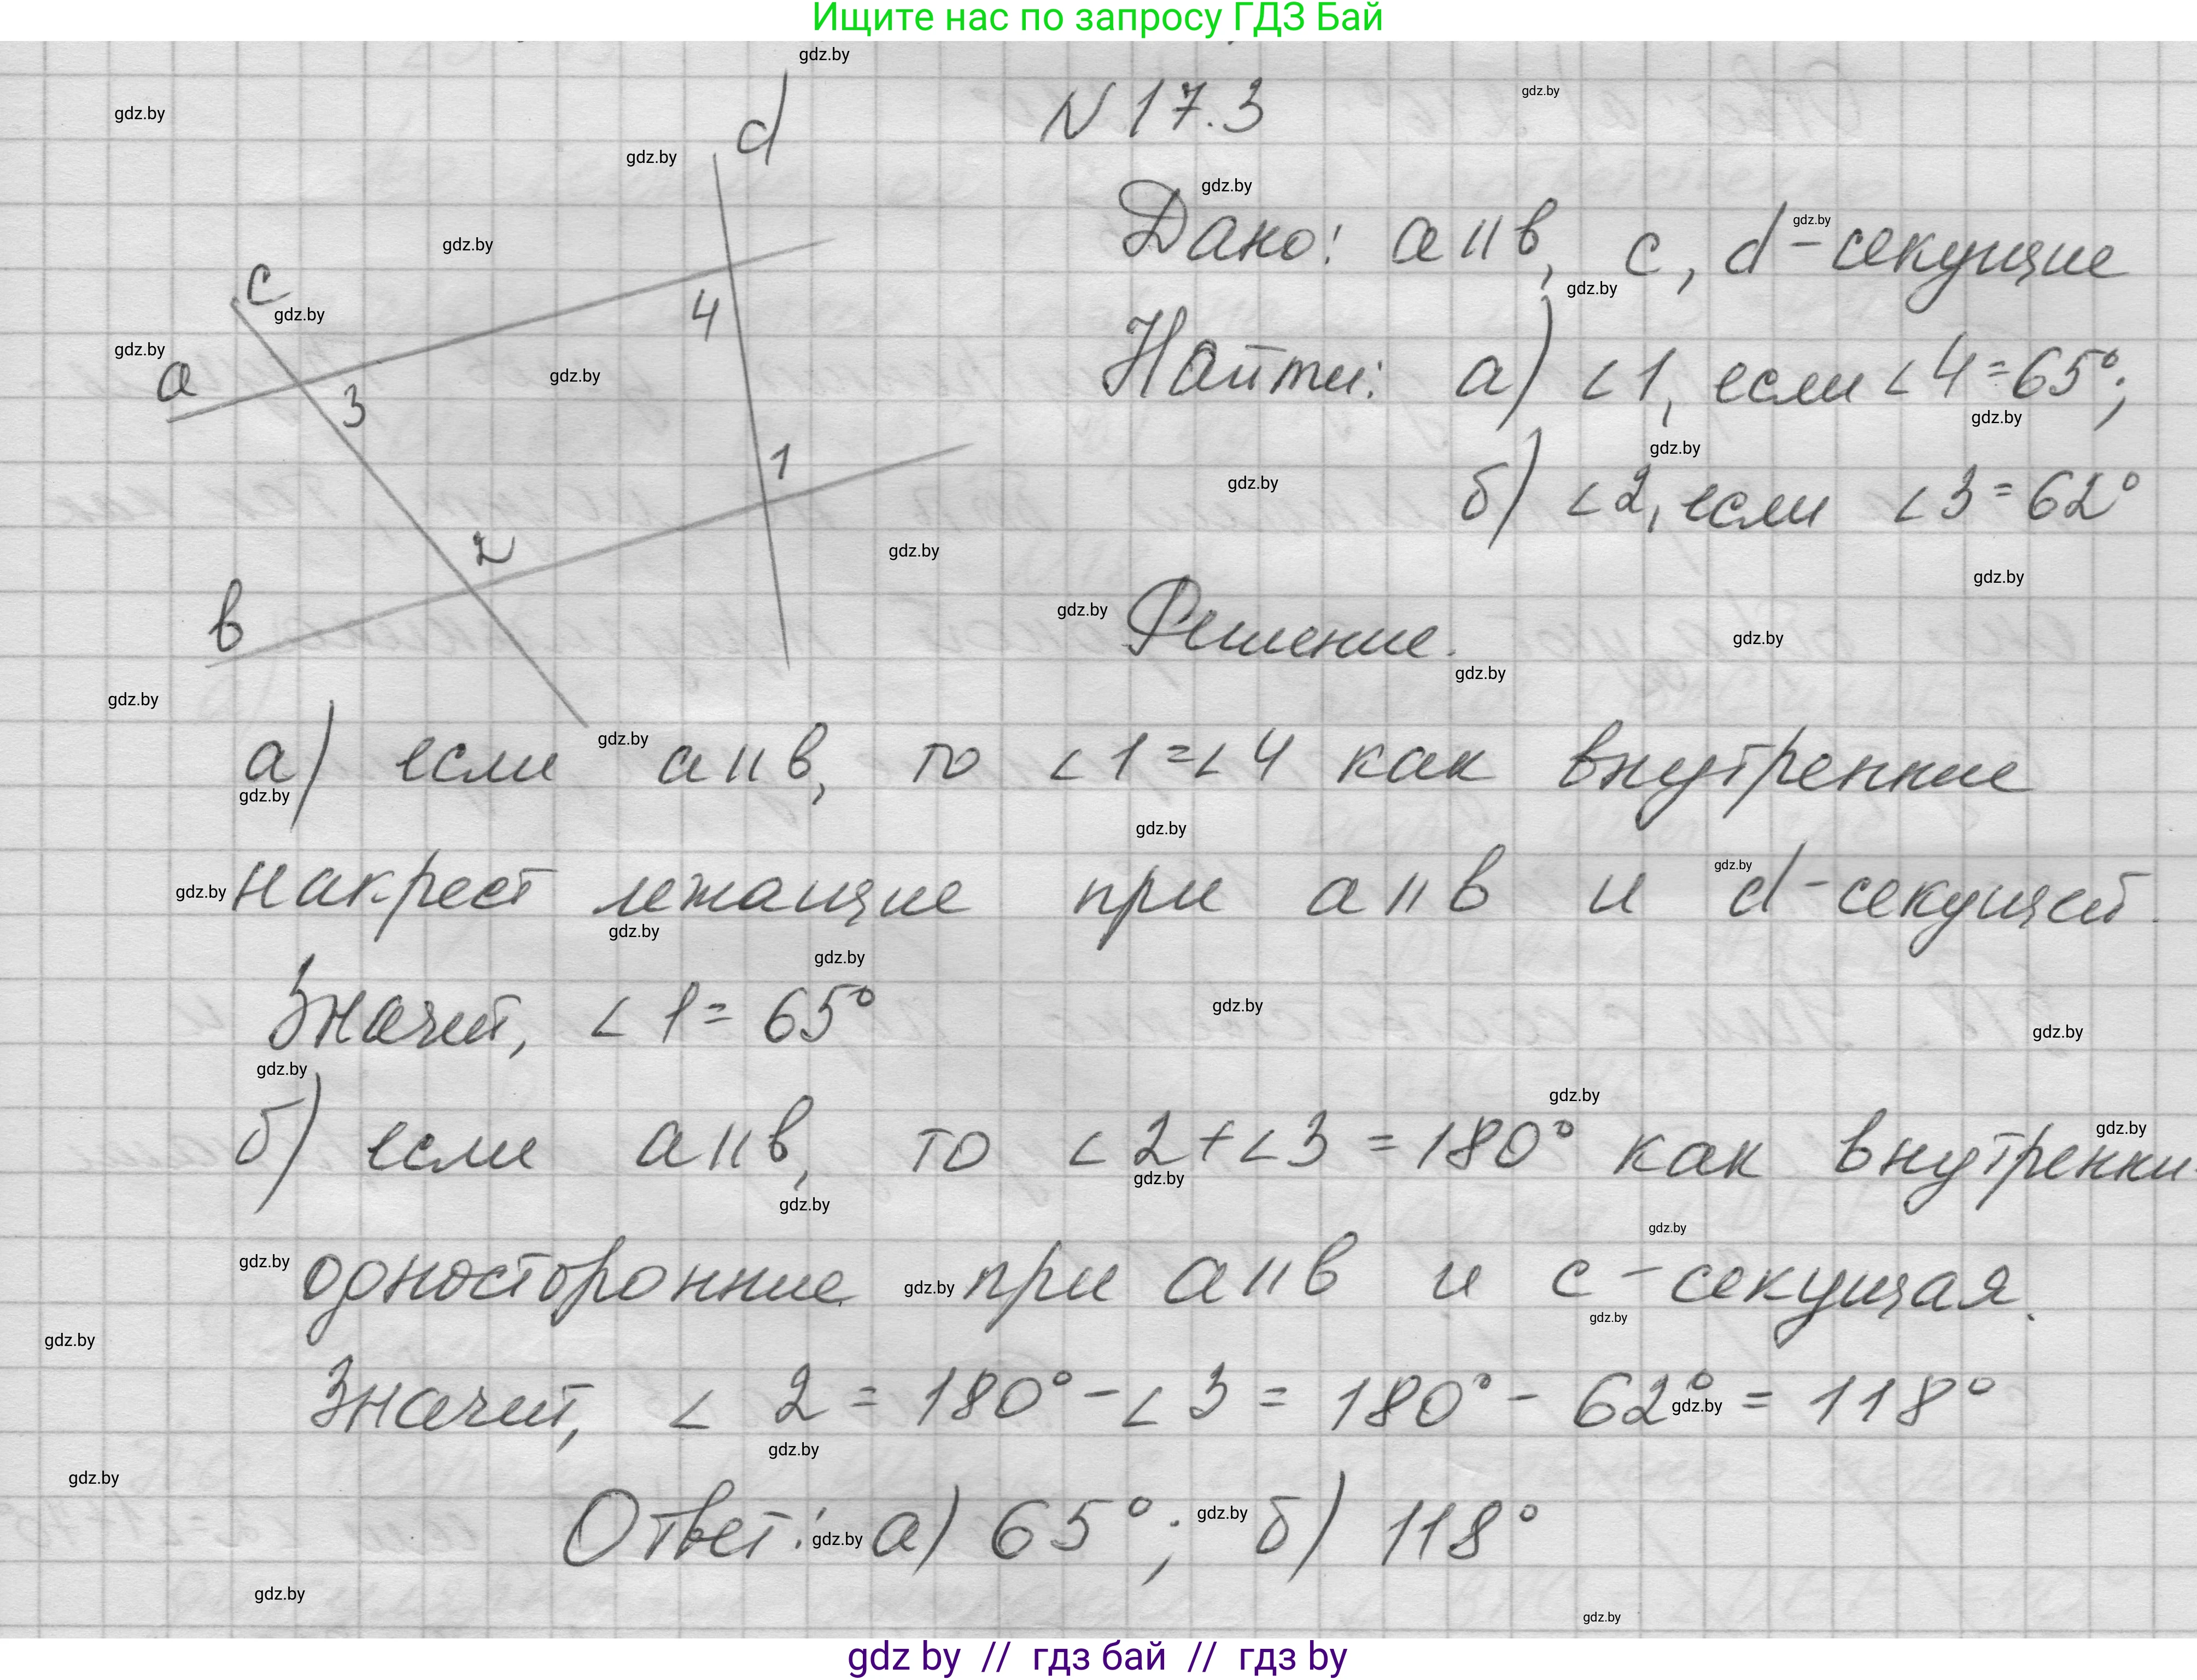 Ищите нас по запросу ГДЗ Бай
N 17.3
Дано: a || в, c, d - секущие
Найти: а) ∠1, если ∠4 = 65°;
б) ∠2, если ∠3 = 62°
d
c
a
4
3
1
2
в
Решение.
а) если a || в, то ∠1 = ∠4 как внутренние
накрест лежащие при a || в и d - секущей.
Значит, ∠1 = 65°
б) если a || в, то ∠2 + ∠3 = 180° как внутренни
односторонние при a || в и c - секущая.
Значит, ∠2 = 180° - ∠3 = 180° - 62° = 118°
Ответ: а) 65°; б) 118°
gdz.by
gdz by // гдз бай // гдз by